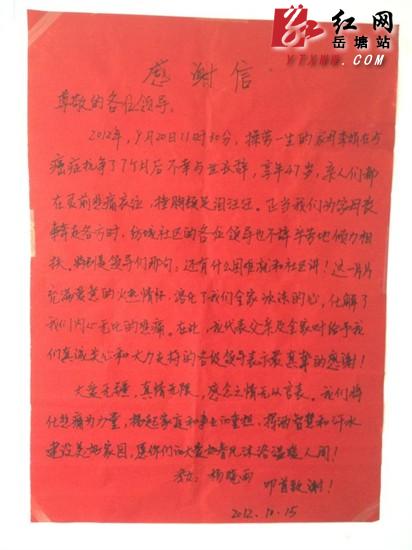 红网
岳塘站
感谢信
尊敬的各位领导:
2012年,9月20日11时30分,操劳一生的家母李娟在与
癌症抗争了7个月后不幸与世长辞,享年47岁,亲人们都
在灵前悲痛哀泣,捶胸顿足泪汪汪。正当我们为家母丧
事奔走各方时,纺城社区的各位领导也不辞辛劳地倾力相
扶。特别是领导们那句:还有什么困难就和社区讲!这一片片
充满慈爱的火热情怀,溶化了我们全家冰冻的心,化解了
我们内心无比的悲痛。在此,我代表父亲及全家对给予我
们真诚关心和大力支持的各级领导表示最真挚的感谢!
大爱无疆,真情无限,感念之情无以言表。我们将
化悲痛为力量,扬起家庭和事业的重担,挥洒智慧和汗水
建设美好家园,愿你们的大爱如春风沐浴温暖人间!
孝女:杨晓雨
叩首致谢!
2012.10.15